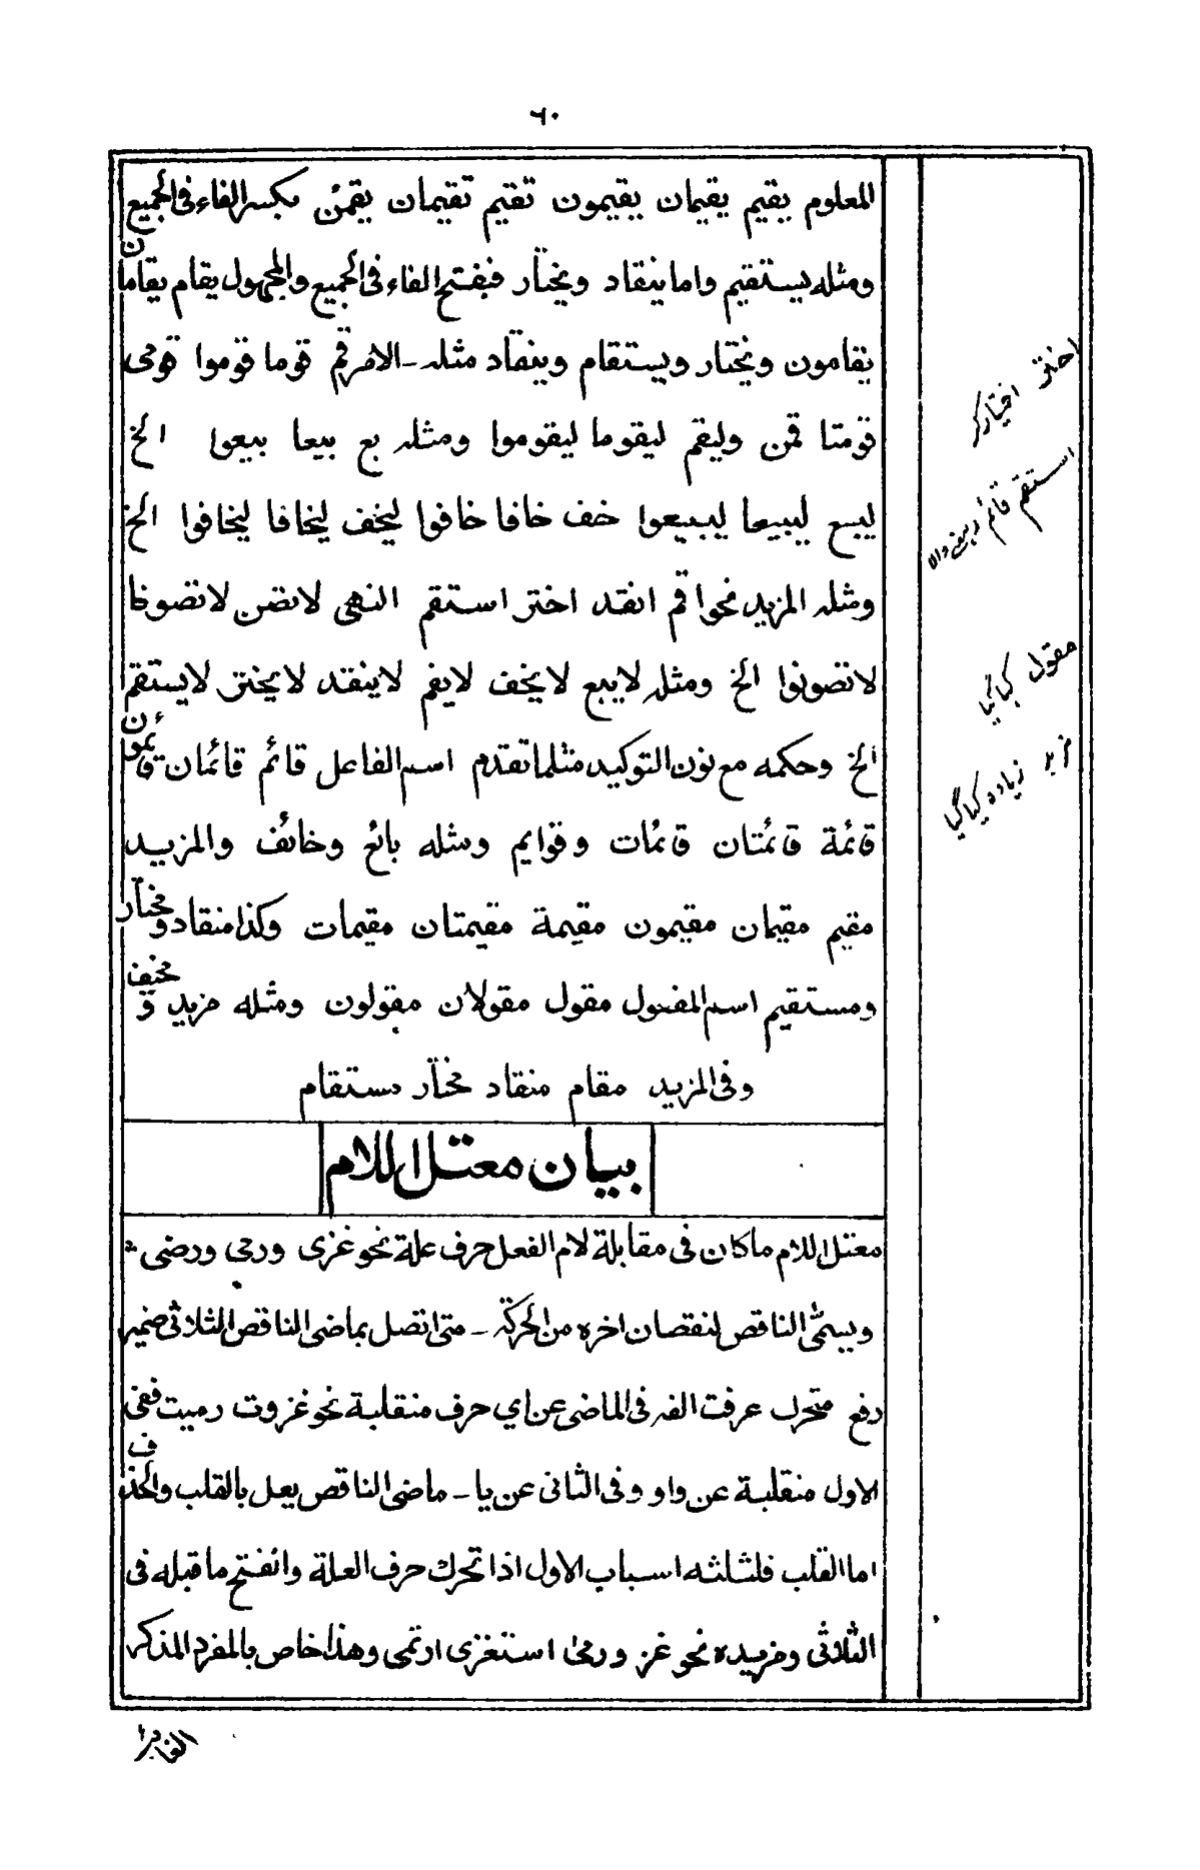 ٦٠
المعلوم يقيم يقيمان يقيمون تقيم تقيمان يقمن بكسر الفاء فى الجميع
ومثله يستقيم واما ينقاد ويختار فبفتح الفاء فى الجميع والمجهول يقام يقامان
يقامون ويختار ويستقام وينقاد مثله ـ الامر قم قوما قوموا قومى
قومتا قمن وليقم ليقوما ليقوموا ومثله بع بيعا بيعوا الخ
ليبع ليبيعا ليبيعوا خف خافا خافوا ليخف ليخافا ليخافوا الخ
ومثله المزيد نحو اقم انقد اختر استقم النهى لاتصن لاتصونا
لاتصونوا الخ ومثله لايبع لايخف لايقم لاينقد لايختر لايستقم
الخ وحكمه مع نون التوكيد مثلما تقدم اسم الفاعل قائم قائمان قائمون
قائمة قائمتان قائمات وقوايم ومثله بائع وخائف والمزيد
مقيم مقيمان مقيمون مقيمة مقيمتان مقيمات وكذا منقاد ومختار
ومستقيم اسم المفعول مقول مقولان مقولون ومثله مزيد و
وفى المزيد مقام منقاد مختار مستقام
بيان معتل اللام
معتل اللام ماكان فى مقابلة لام الفعل حرف علة نحو غزى ورمى ورضى
ويسمى الناقص لنقصان اخره من الحركة ـ متى اتصل بماضى الناقص الثلاثى ضمير
رفع متحرك عرفت الفه فى الماضى عن اي حرف منقلبة نحو غزوت رميت ففى
الاول منقلبة عن واو وفى الثانى عن يا ـ ماضى الناقص يعل بالقلب والحذف
اما القلب فلثلثه اسباب الاول اذا تحرك حرف العلة وانفتح ماقبله فى
الثلاثى ومزيده نحو غز ورمى استغزى ارتمى وهذا خاص بالمفرد المذكر
اختر اختیار کر
استقم قائم رہنے والا
مقول کہا گیا
مزید زیادہ کیا گیا